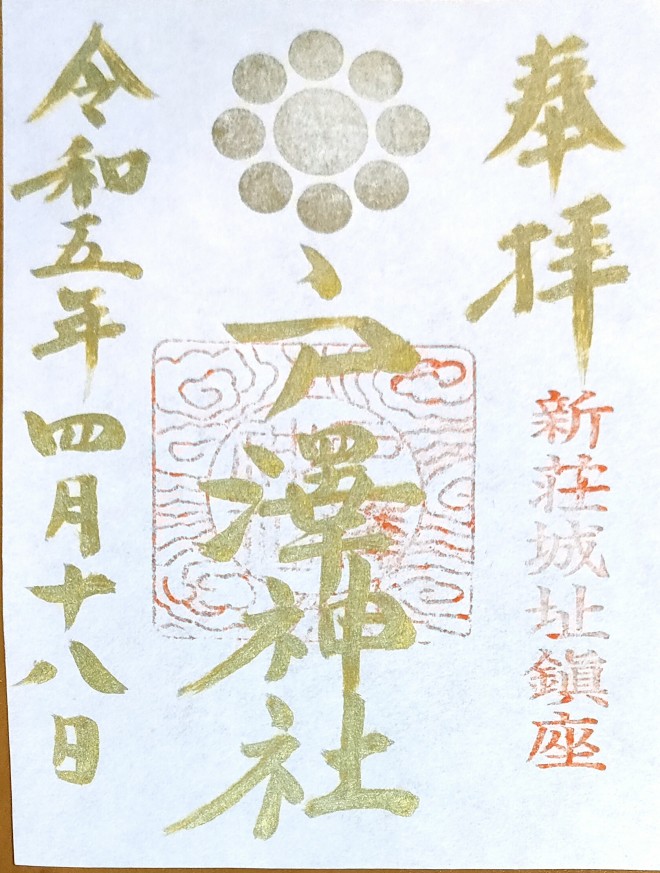 奉拝
新荘城址鎮座
戸澤神社
令和五年四月十八日